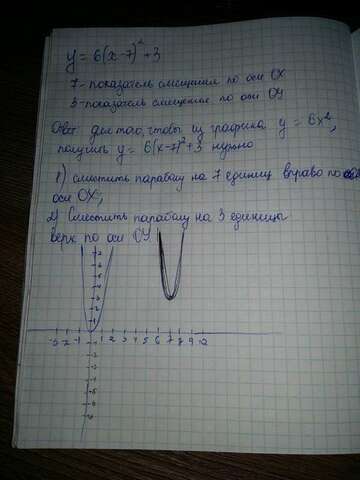 y = 6(x-7)² + 3
7 - показатель смещения по оси OX
3 - показатель смещение по оси OY
Ответ для того, чтобы из графика y = 6x²,
получить y = 6(x-7)² + 3 нужно
1) сместить параболу на 7 единиц вправо по
оси OX;
2) Сместить параболу на 3 единицы
верх по оси OY.